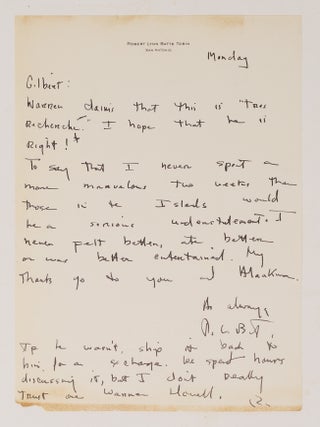 ROBERT LYNN BATTS TOBIN
SAN ANTONIO
Monday
Gilbert:
Warren claims that this is "tres
recherche." I hope that he is
right! *
To say that I never spent a
more marvelous two weeks than
those in the Islands would
be a serious understatement. I
never felt better, ate better
or was better entertained. My
thanks go to you and
As always,
R. L. B. T.
If he wasn't, ship it back to
him for a exchange. We spent hours
discussing it, but I don't really
trust one Warren Howell.
R.